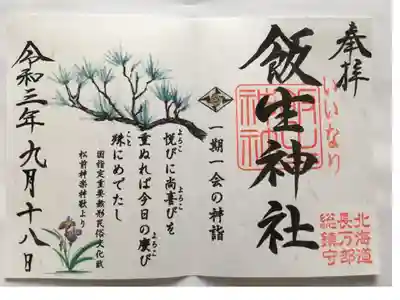 奉拝
いいなり
飯生神社
北海道
長万部
総鎮守
一期一会の神詣
悦びに尚喜びを
重ぬれば今日の慶び
殊にめでたし
国指定重要無形民俗文化財
松前神楽神歌より
令和三年九月十八日